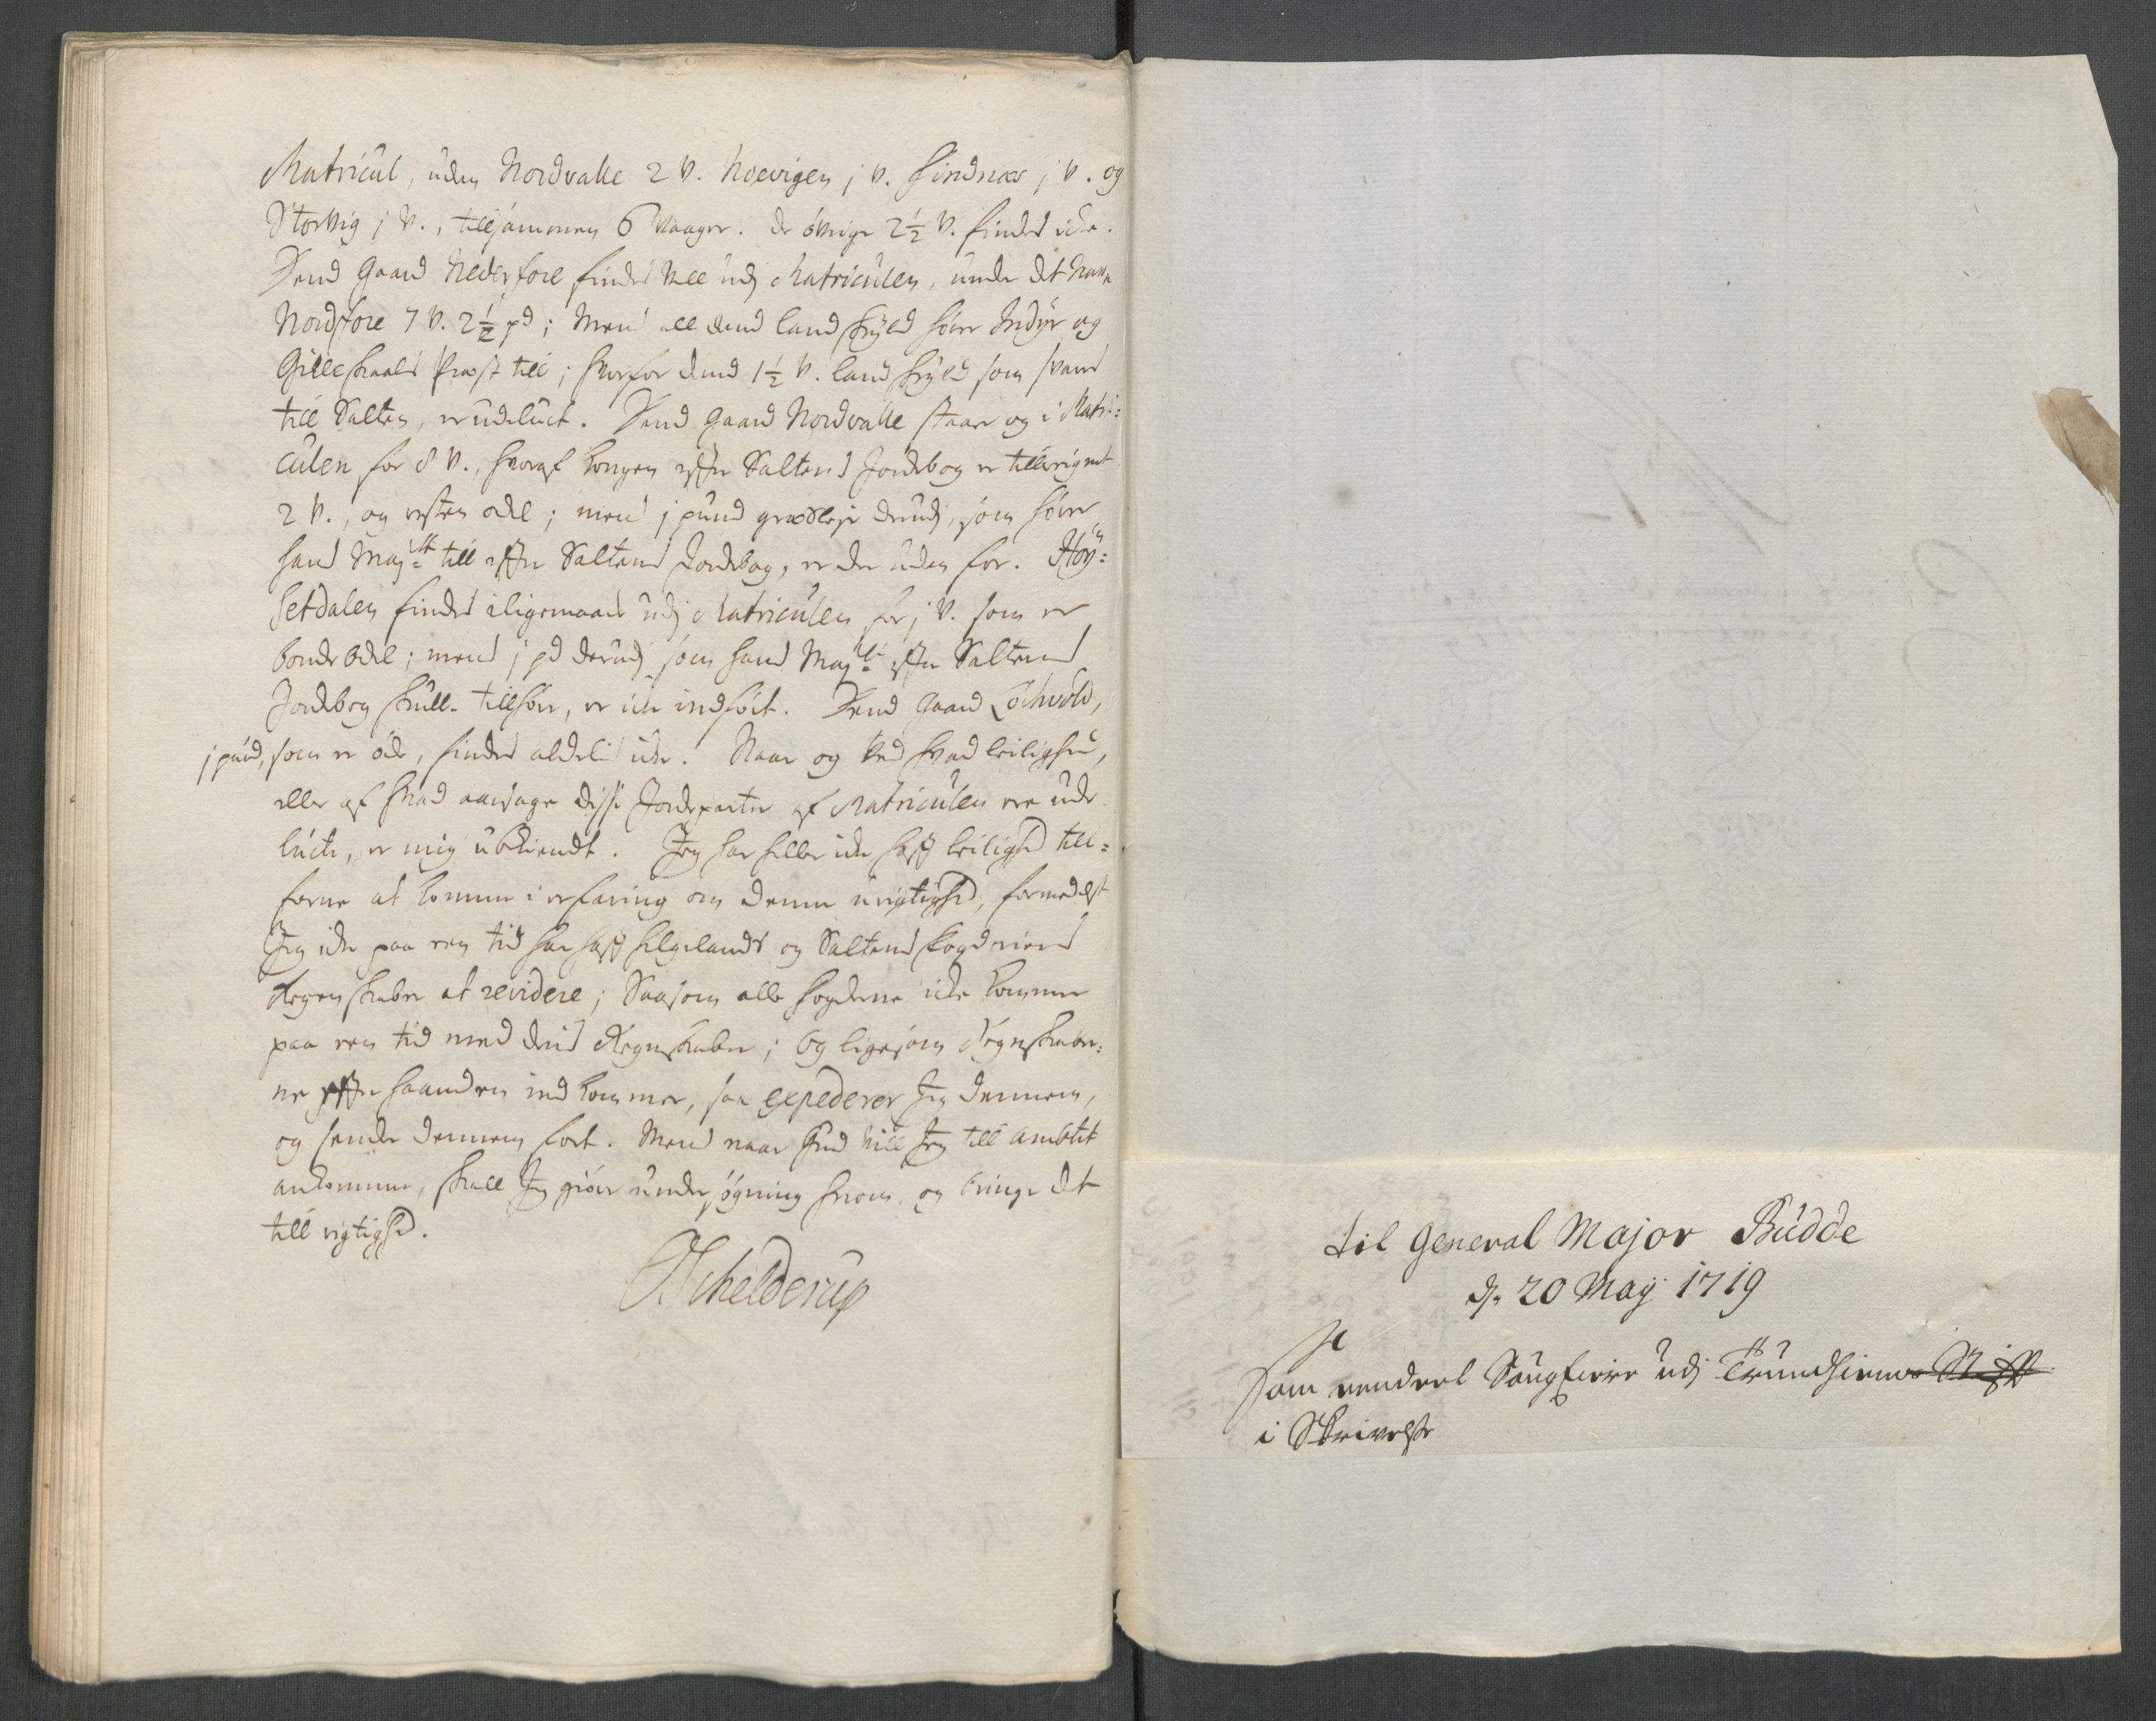 Matricul, uden Nordvalle 2 V. Noevigen j V. Findnæs j V. og
Storvig j V., tillsammen 6 Vaager. de öfrige 2½ V. findes icke.
Dend Gaard Nederfore findes vell udj Matriculen, under det Nafn
Nordfore 7 V. 2½ pd; Mens all dend landskyld hörer Indyr og
Gilleskaals Præst till; hvorfor dend 1½ V. landskyld som svares
till Salten, er udeluct. Dend gaard Nordvalle staar og i Matri=
culen for 8 V., hvoraf Kongen efter Saltens Jordebog er tillegnet
2 V., og resten odel; mens j pund græsleje derudj, som hörer
hans Majtt till efter Saltens Jordebog, er der uden for. Höy=
setdalen findes iligemaade udj Matriculen for j V. som er
bonde Odel; mens j pd derudj som hans Majtt efter Saltens
Jordebog skulle tillhöre, er icke indfört. Dend gaard
j pund, som er öde, findes aldelis icke. Naar og ved hvad leilighed,
eller af hvad aarsage disse Jordeparter af Matriculen ere ude
lucte, er mig ubekiendt. Jeg har heller icke haft leilighed till=
forne at komme i erfaring om denne urigtighed, formedelst
Jeg icke paa een tid har haft Helgelands og Saltens Fogderiers
Regenskaber at revidere; Saasom alle fogderne icke kommer
paa een tid med deris Regnskaber; og ligesom Regnskaber=
ne efter haanden ind kommer, saa expederer Jeg dennem,
og sender dennem fort. Mens naar Gud vill Jeg till Ambtet
ankommer, skall Jeg giöre undersögning herom, og bringe det
till rigtighed.
Schelderup
til General Major Büdde
d. 20 Maij 1719
Som Saugfierre udj Trundhiems Stift
i Skrivelse